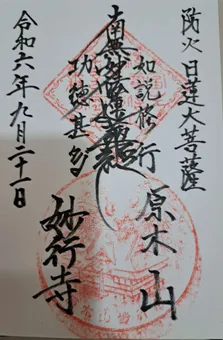 防火 日蓮大菩薩
如説修行
原木山
南無妙法蓮華経
功徳甚多
妙行寺
令和六年九月二十一日